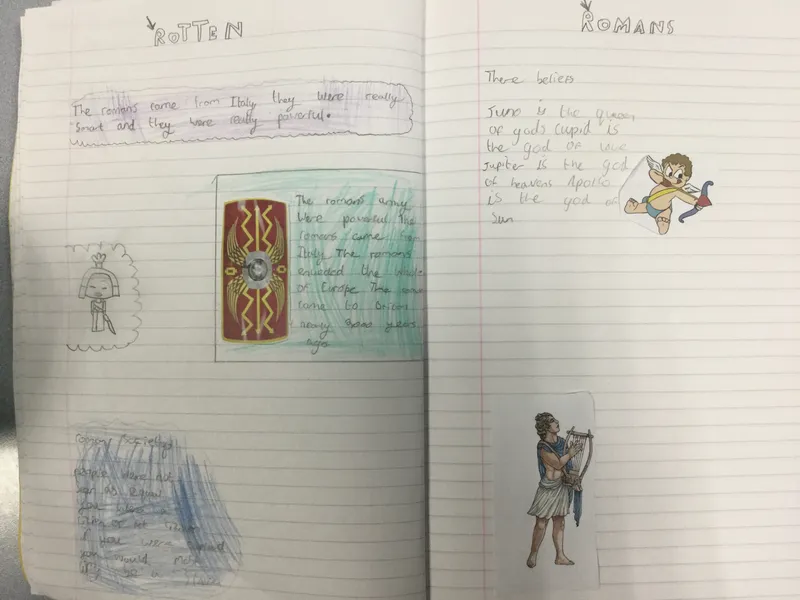 ROTTEN
The romans came from Italy they were really
smart and they were really powerful.
The romans army
were powerful the
romans came from
Italy The romans
envaded the whole
of Europe The
came to Britain
nearly years
ago
romans
people were not
as equal
you
if you were
you would
be a
ROMANS
There beliefs
Juno is the queen
of gods Cupid is
the god of love
Jupiter is the god
of heavens Apollo
is the god of
sun